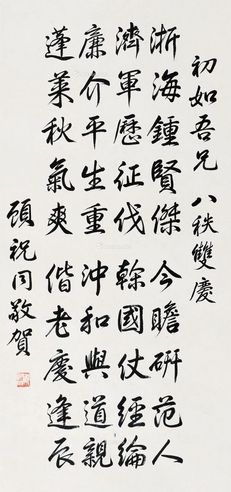 初如吾兄 八秩雙慶
浙海鍾賢傑 今瞻研范人
濟軍歷征伐 榦國仗經綸
廉介平生重 沖和與道親
蓬萊秋氣爽 偕老慶逢辰
顧祝同敬賀